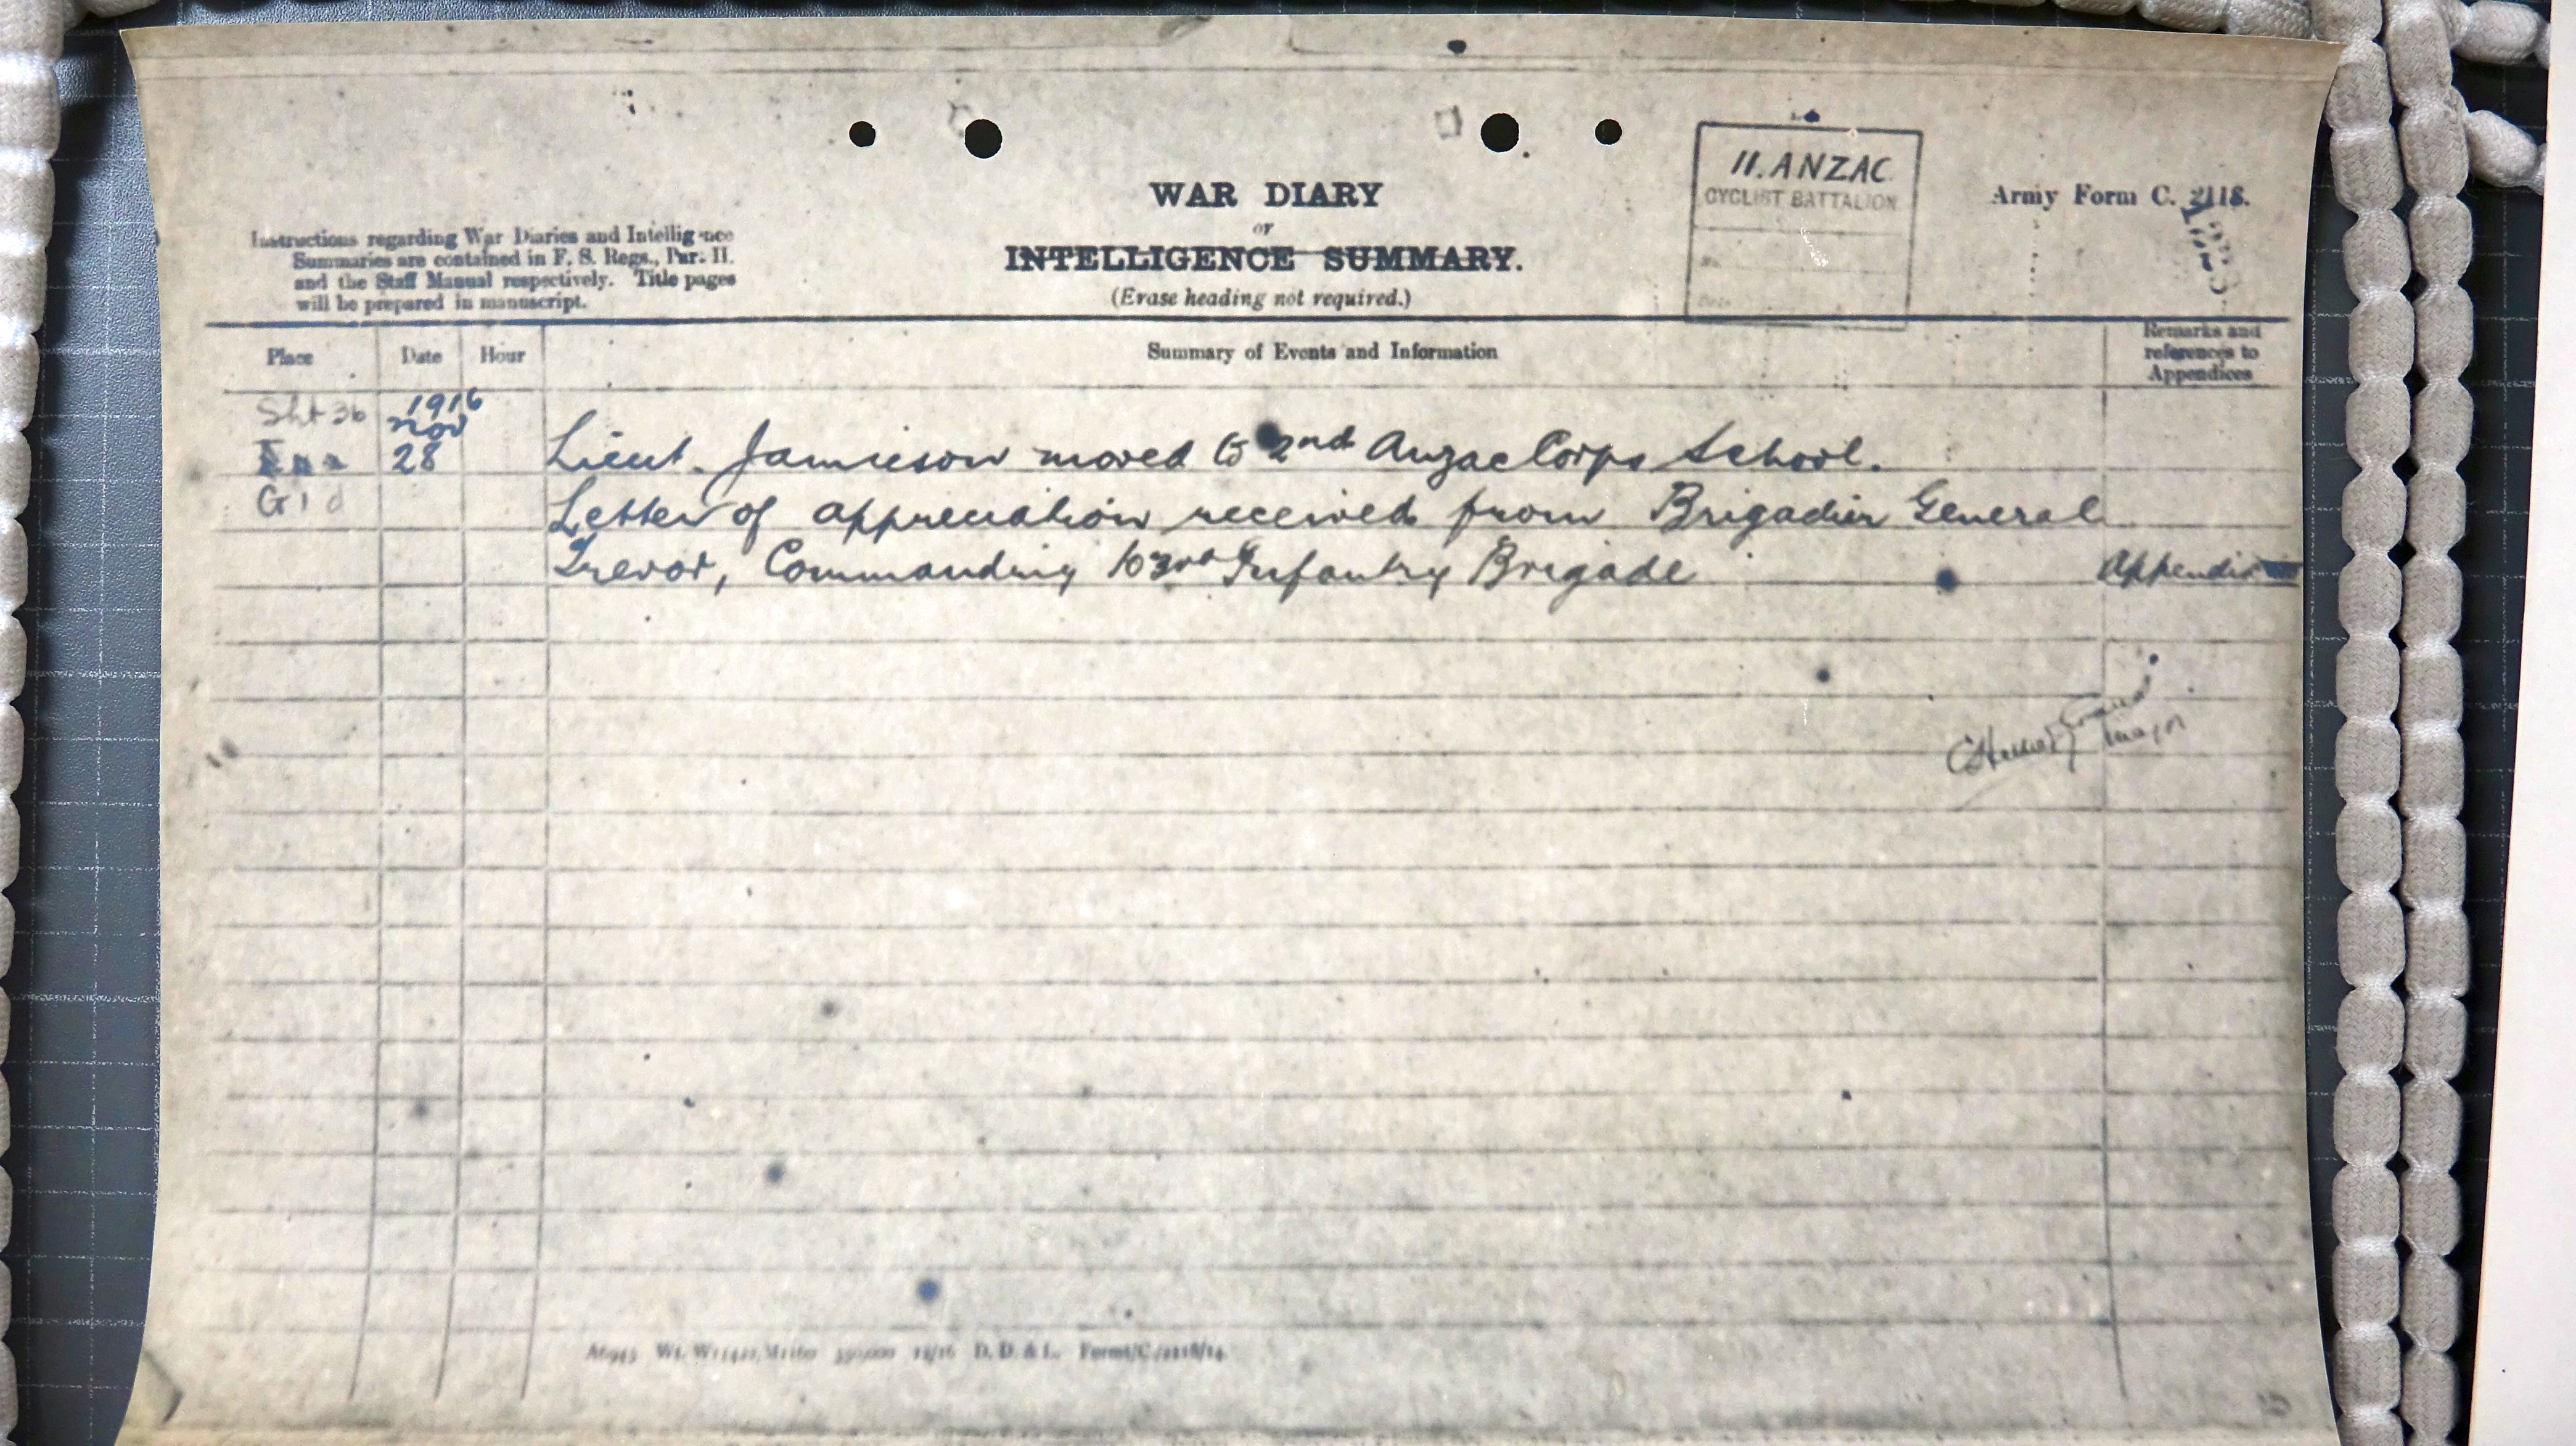 II. ANZAC
CYCLIST BATTALION
WAR DIARY
or
INTELLIGENCE SUMMARY.
(Erase heading not required.)
Army Form C. 2118.
Instructions regarding War Diaries and Intelligence
Summaries are contained in F. S. Regs., Part II.
and the Staff Manual respectively. Title pages
will be prepared in manuscript.
Place Date Hour Summary of Events and Information Remarks and
references to
Appendices
Sht 36 1916
Nov
28 Lieut. Jamieson moved to 2nd Anzac Corps School.
G1d Letter of appreciation received from Brigadier General
Trevor, Commanding 103rd Infantry Brigade Appendix
Major
D. D. & L.